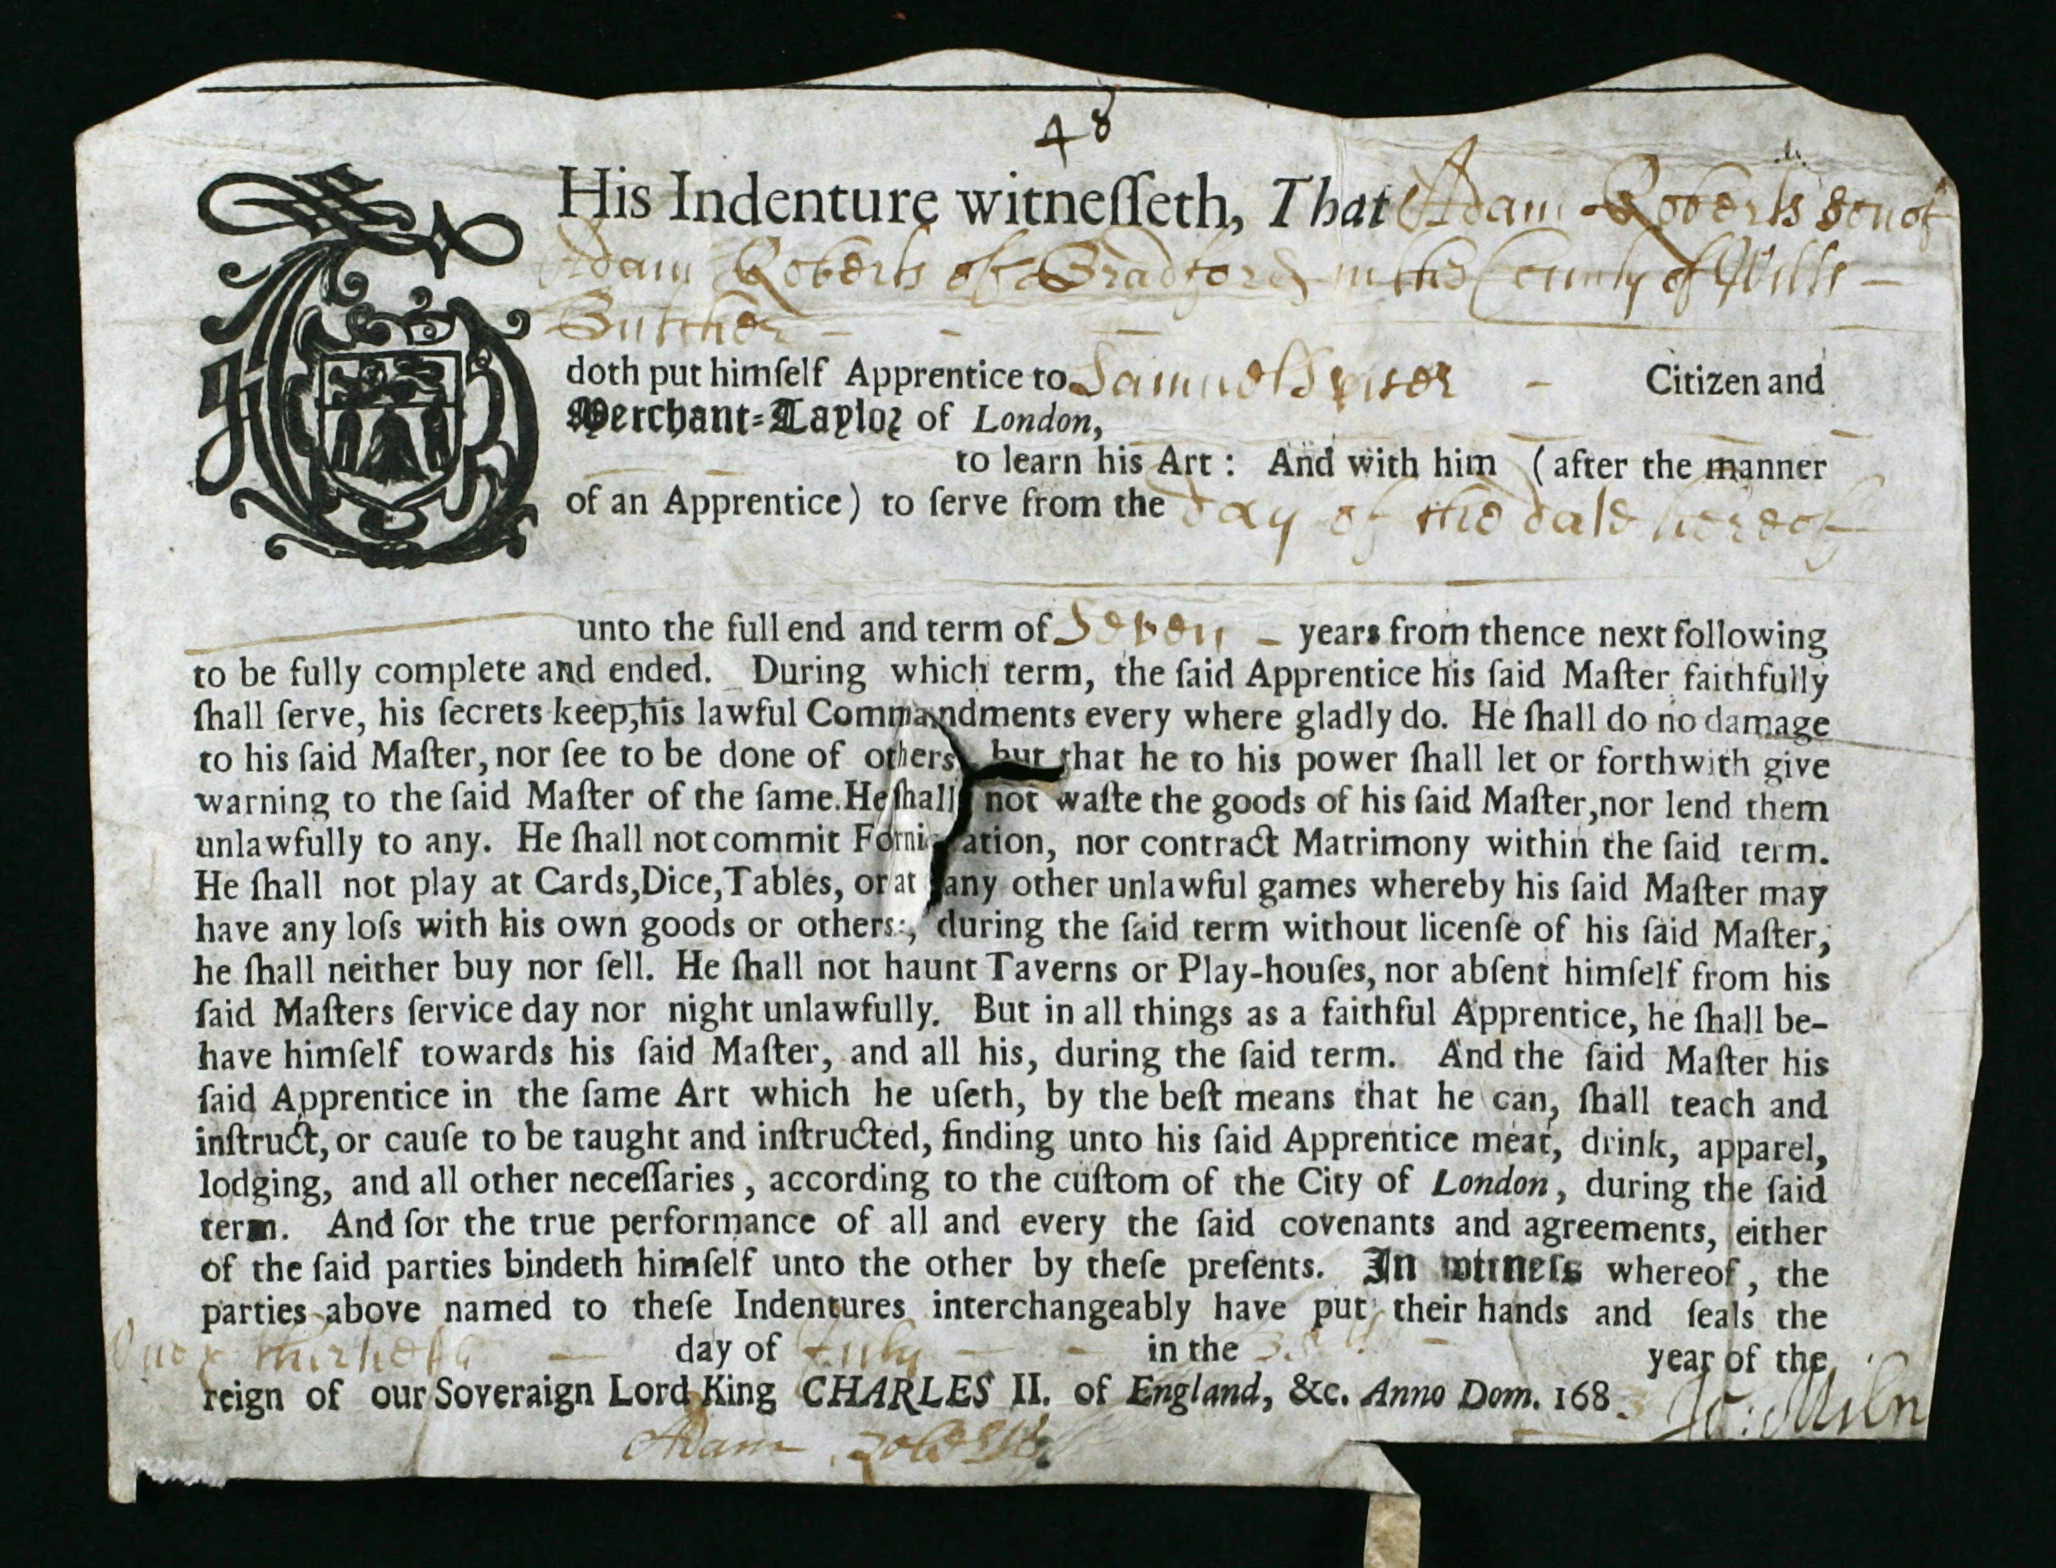 48
THis Indenture witneſſeth, That Adam Roberts son of
Adam Roberts of Bradford in the County of Wilts
Butcher
doth put himſelf Apprentice to Samuel Citizen and
Merchant-Taylor of London,
to learn his Art: And with him (after the manner
of an Apprentice) to ſerve from the day of the date hereof
unto the full end and term of Seven years from thence next following
to be fully complete and ended. During which term, the ſaid Apprentice his ſaid Maſter faithfully
ſhall ſerve, his ſecrets keep, his lawful Commandments every where gladly do. He ſhall do no damage
to his ſaid Maſter, nor ſee to be done of others, but that he to his power ſhall let or forthwith give
warning to the ſaid Maſter of the ſame. He ſhall not waſte the goods of his ſaid Maſter, nor lend them
unlawfully to any. He ſhall not commit Fornication, nor contract Matrimony within the ſaid term.
He ſhall not play at Cards, Dice, Tables, or at any other unlawful games whereby his ſaid Maſter may
have any loſs with his own goods or others:, during the ſaid term without licenſe of his ſaid Maſter,
he ſhall neither buy nor ſell. He ſhall not haunt Taverns or Play-houſes, nor abſent himſelf from his
ſaid Maſters ſervice day nor night unlawfully. But in all things as a faithful Apprentice, he ſhall be-
have himſelf towards his ſaid Maſter, and all his, during the ſaid term. And the ſaid Maſter his
ſaid Apprentice in the ſame Art which he uſeth, by the beſt means that he can, ſhall teach and
inſtruct, or cauſe to be taught and inſtructed, finding unto his ſaid Apprentice meat, drink, apparel,
lodging, and all other neceſſaries, according to the cuſtom of the City of London, during the ſaid
term. And for the true performance of all and every the ſaid covenants and agreements, either
of the ſaid parties bindeth himſelf unto the other by theſe preſents. In witneſs whereof, the
parties above named to theſe Indentures interchangeably have put their hands and ſeals the
day of July in the 35th year of the
reign of our Soveraign Lord King CHARLES II. of England, &c. Anno Dom. 1683
Jo: Miln
Adam Roberts